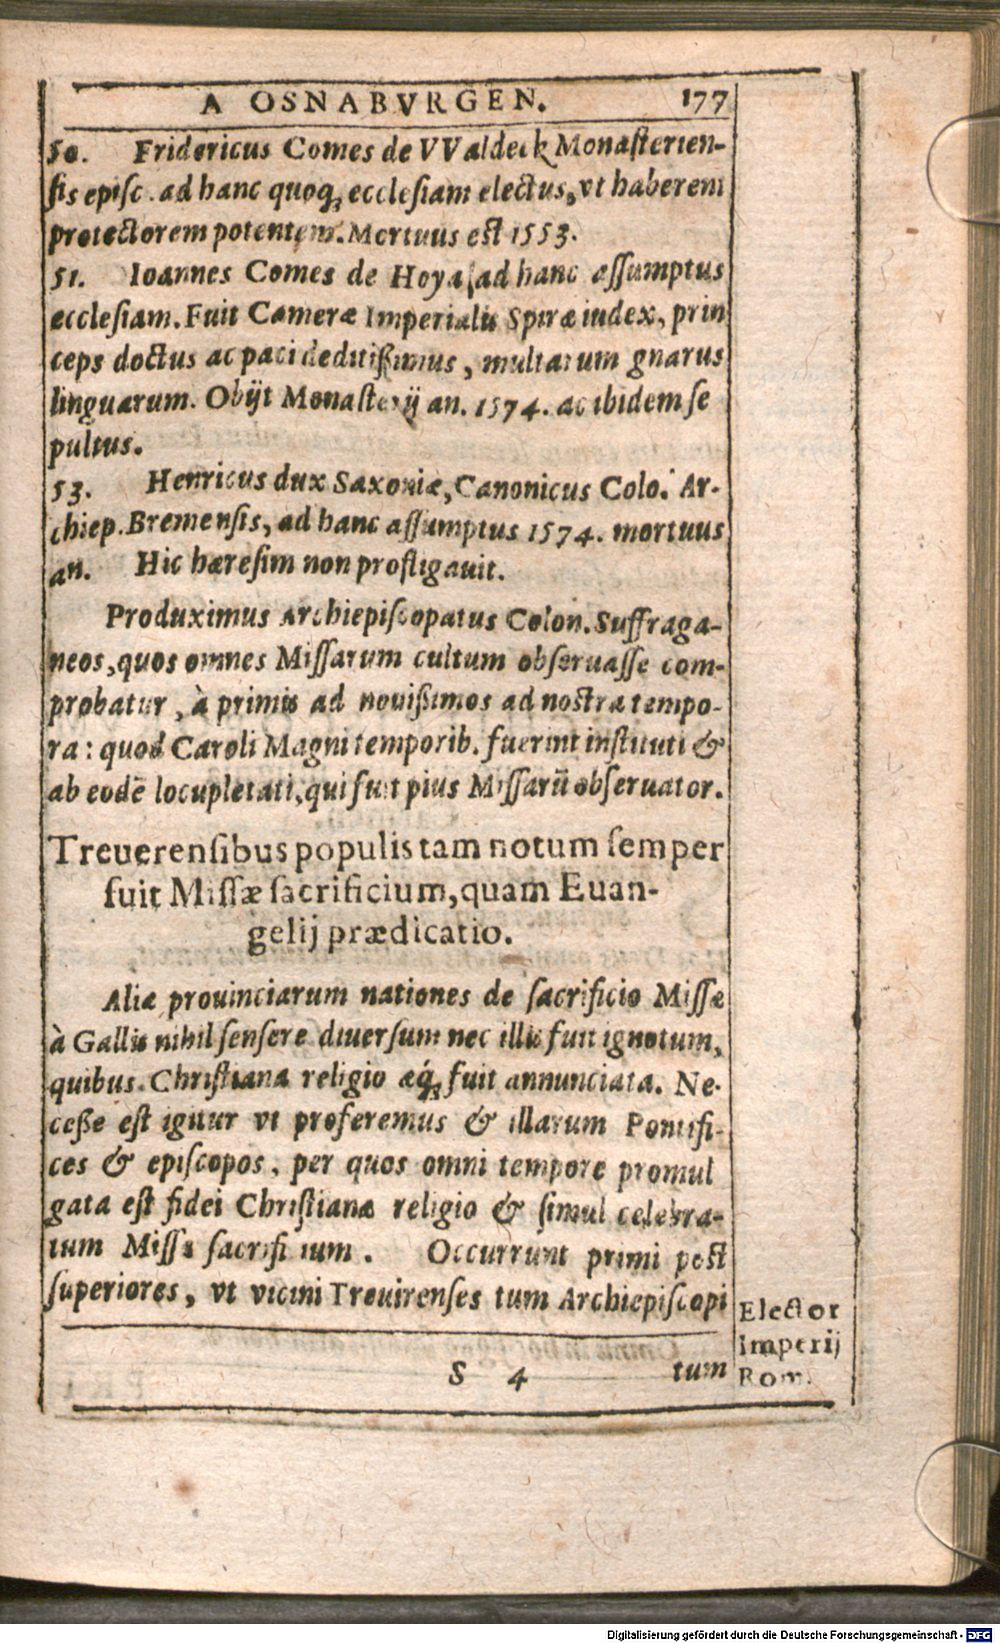 A OSNABVRGEN. 177
50. Fridericus Comes de VValdeck Monaſterien-
ſis epiſc. ad hanc quoq; eccleſiam electus, vt haberem
protectorem potentem. Mortuus eſt 1553.
51. Ioannes Comes de Hoya, ad hanc aſſumptus
eccleſiam. Fuit Cameræ Imperialis Spiræ iudex, prin
ceps doctus ac paci deditißimus, multarum gnarus
linguarum. Obijt Monaſterij an. 1574. ac ibidem ſe
pultus.
53. Henricus dux Saxoniæ, Canonicus Colo. Ar-
chiep. Bremenſis, ad hanc aſſumptus 1574. mortuus
an. Hic hæreſim non profligauit.
Produximus Archiepiſcopatus Colon. Suffraga-
neos, quos omnes Miſſarum cultum obſeruaſſe com-
probatur, à primis ad nouißimos ad noſtra tempo-
ra: quod Caroli Magni temporib. fuerint inſtituti &
ab eodē locupletati, qui fuit pius Miſſarū obſeruator.
Treuerenſibus populis tam notum ſemper
fuit Miſſæ ſacrificium, quam Euan-
gelij prædicatio.
Aliæ prouinciarum nationes de ſacrificio Miſſæ
à Gallis nihil ſenſere diuerſum nec illis fuit ignotum,
quibus Chriſtiana religio æq́; fuit annunciata. Ne-
ceße eſt igitur vt proferemus & illarum Pontifi-
ces & epiſcopos, per quos omni tempore promul
gata eſt fidei Chriſtianæ religio & ſimul celebra-
tum Miſſæ ſacrifi ium. Occurrunt primi poſt
ſuperiores, vt vicini Treuirenſes tum Archiepiſcopi
Elector
Imperij
Rom.
S 4 tum
Digitalisierung gefördert durch die Deutsche Forschungsgemeinschaft - DFG